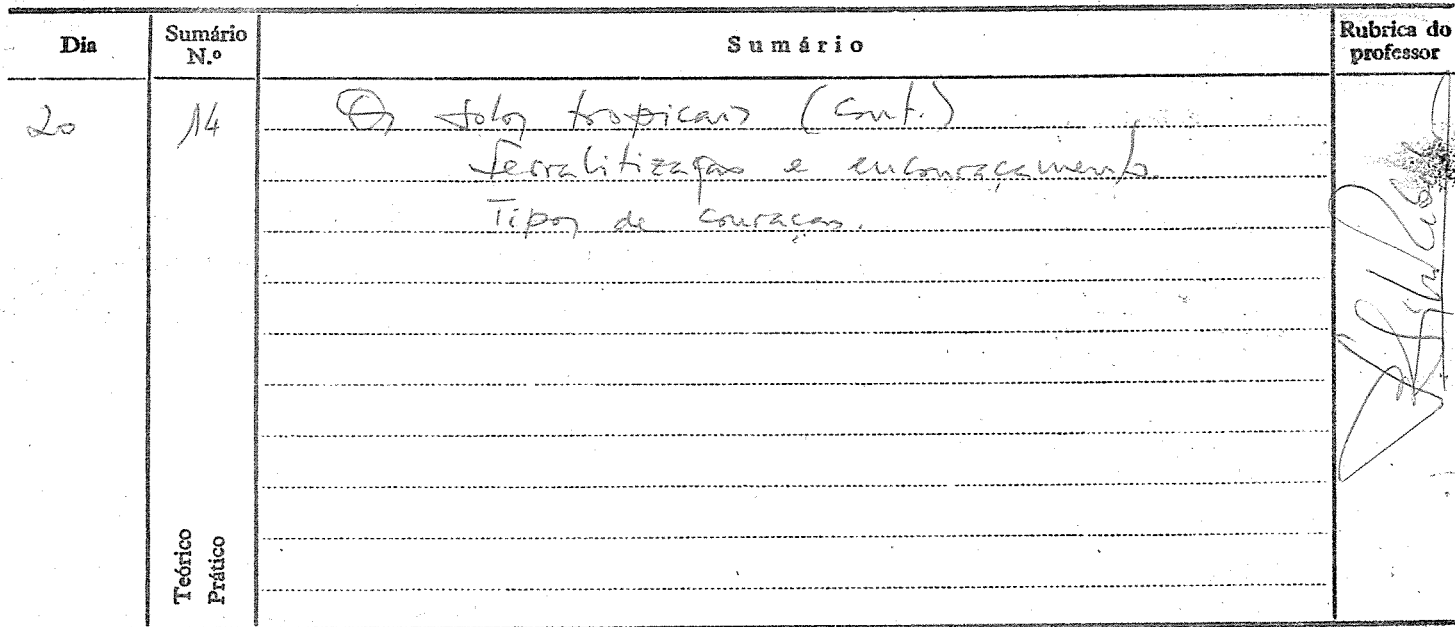 Dia Sumário N.º Sumário Rubrica do professor
20 14 Os solos tropicais (Cont.)
Ferralitização e encouraçamento.
Tipos de couraças.
Teórico
Prático